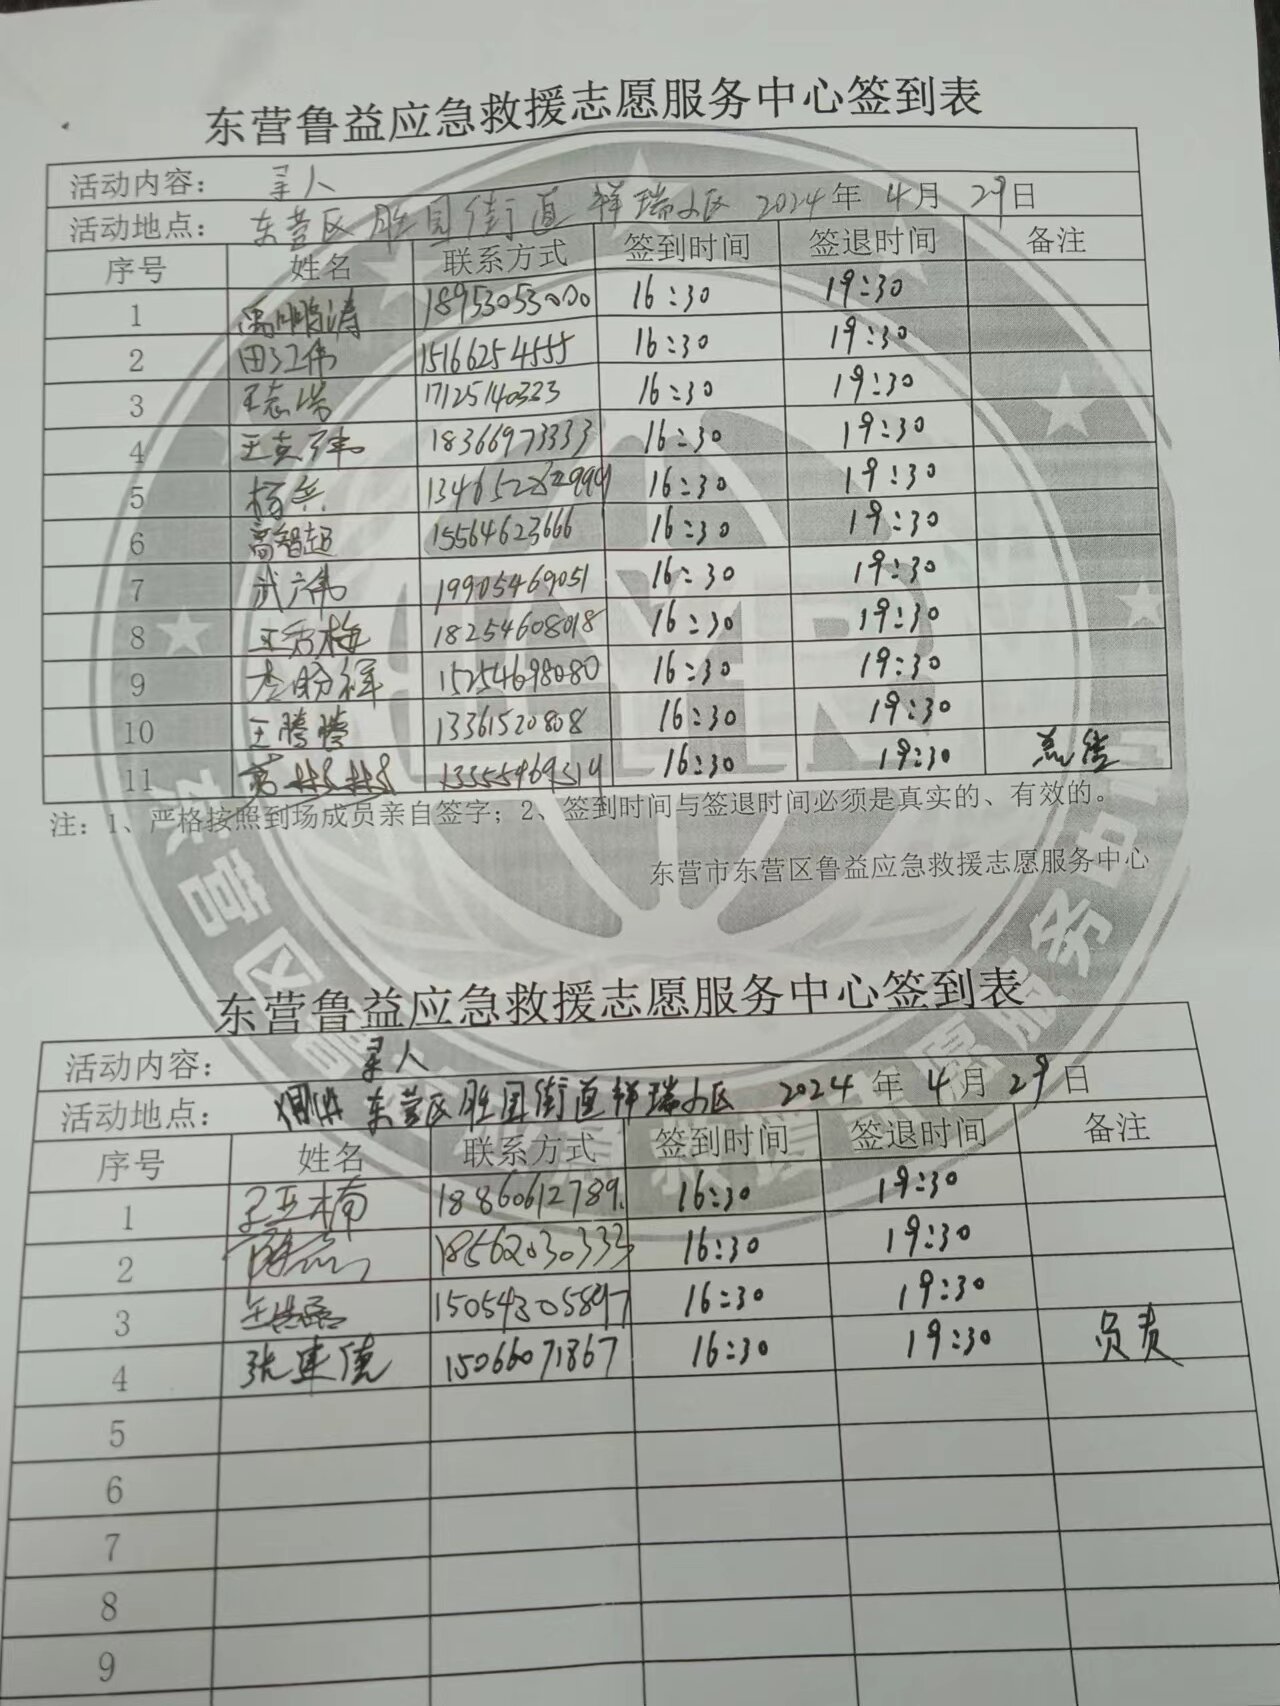 东营鲁益应急救援志愿服务中心签到表
活动内容： 寻人
活动地点： 东营区胜园街道祥瑞小区 2024年 4月 29日
序号 姓名 联系方式 签到时间 签退时间 备注
1 禹鹏涛 18953053000 16:30 19:30
2 田江伟 15166254555 16:30 19:30
3 王志浩 17125140333 16:30 19:30
4 王克伟 18366973333 16:30 19:30
5 杨兵 16:30 19:30
6 高智超 15564623666 16:30 19:30
7 武广伟 19905469051 16:30 19:30
8 王秀梅 18254608018 16:30 19:30
9 李盼祥 15254698080 16:30 19:30
10 王腾腾 13361520808 16:30 19:30
11 16:30 19:30
注：1、严格按照到场成员亲自签字；2、签到时间与签退时间必须是真实的、有效的。
东营市东营区鲁益应急救援志愿服务中心
东营鲁益应急救援志愿服务中心签到表
活动内容： 寻人
活动地点： 东营区胜园街道祥瑞小区 2024年 4月 29日
序号 姓名 联系方式 签到时间 签退时间 备注
1 孟亚楠 18860612789 16:30 19:30
2 18562030333 16:30 19:30
3 15054305897 16:30 19:30
4 张建德 15066071867 16:30 19:30 负责
5
6
7
8
9